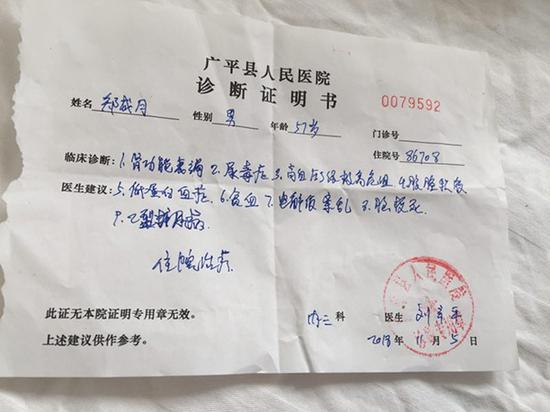 广平县人民医院
诊断证明书
0079592
姓名 郑成月 性别 男 年龄 57岁 门诊号
住院号 86708
临床诊断：1.肾功能衰竭 2.尿毒症 3.高血压3级极高危组 4.胸腔积液
医生建议：5.低蛋白血症 6.贫血 7.电解质紊乱 8.脑梗死
9.2型糖尿病
住院治疗
此证无本院证明专用章无效。 内二 科 医生
上述建议供作参考。 2018 年 11 月 5 日